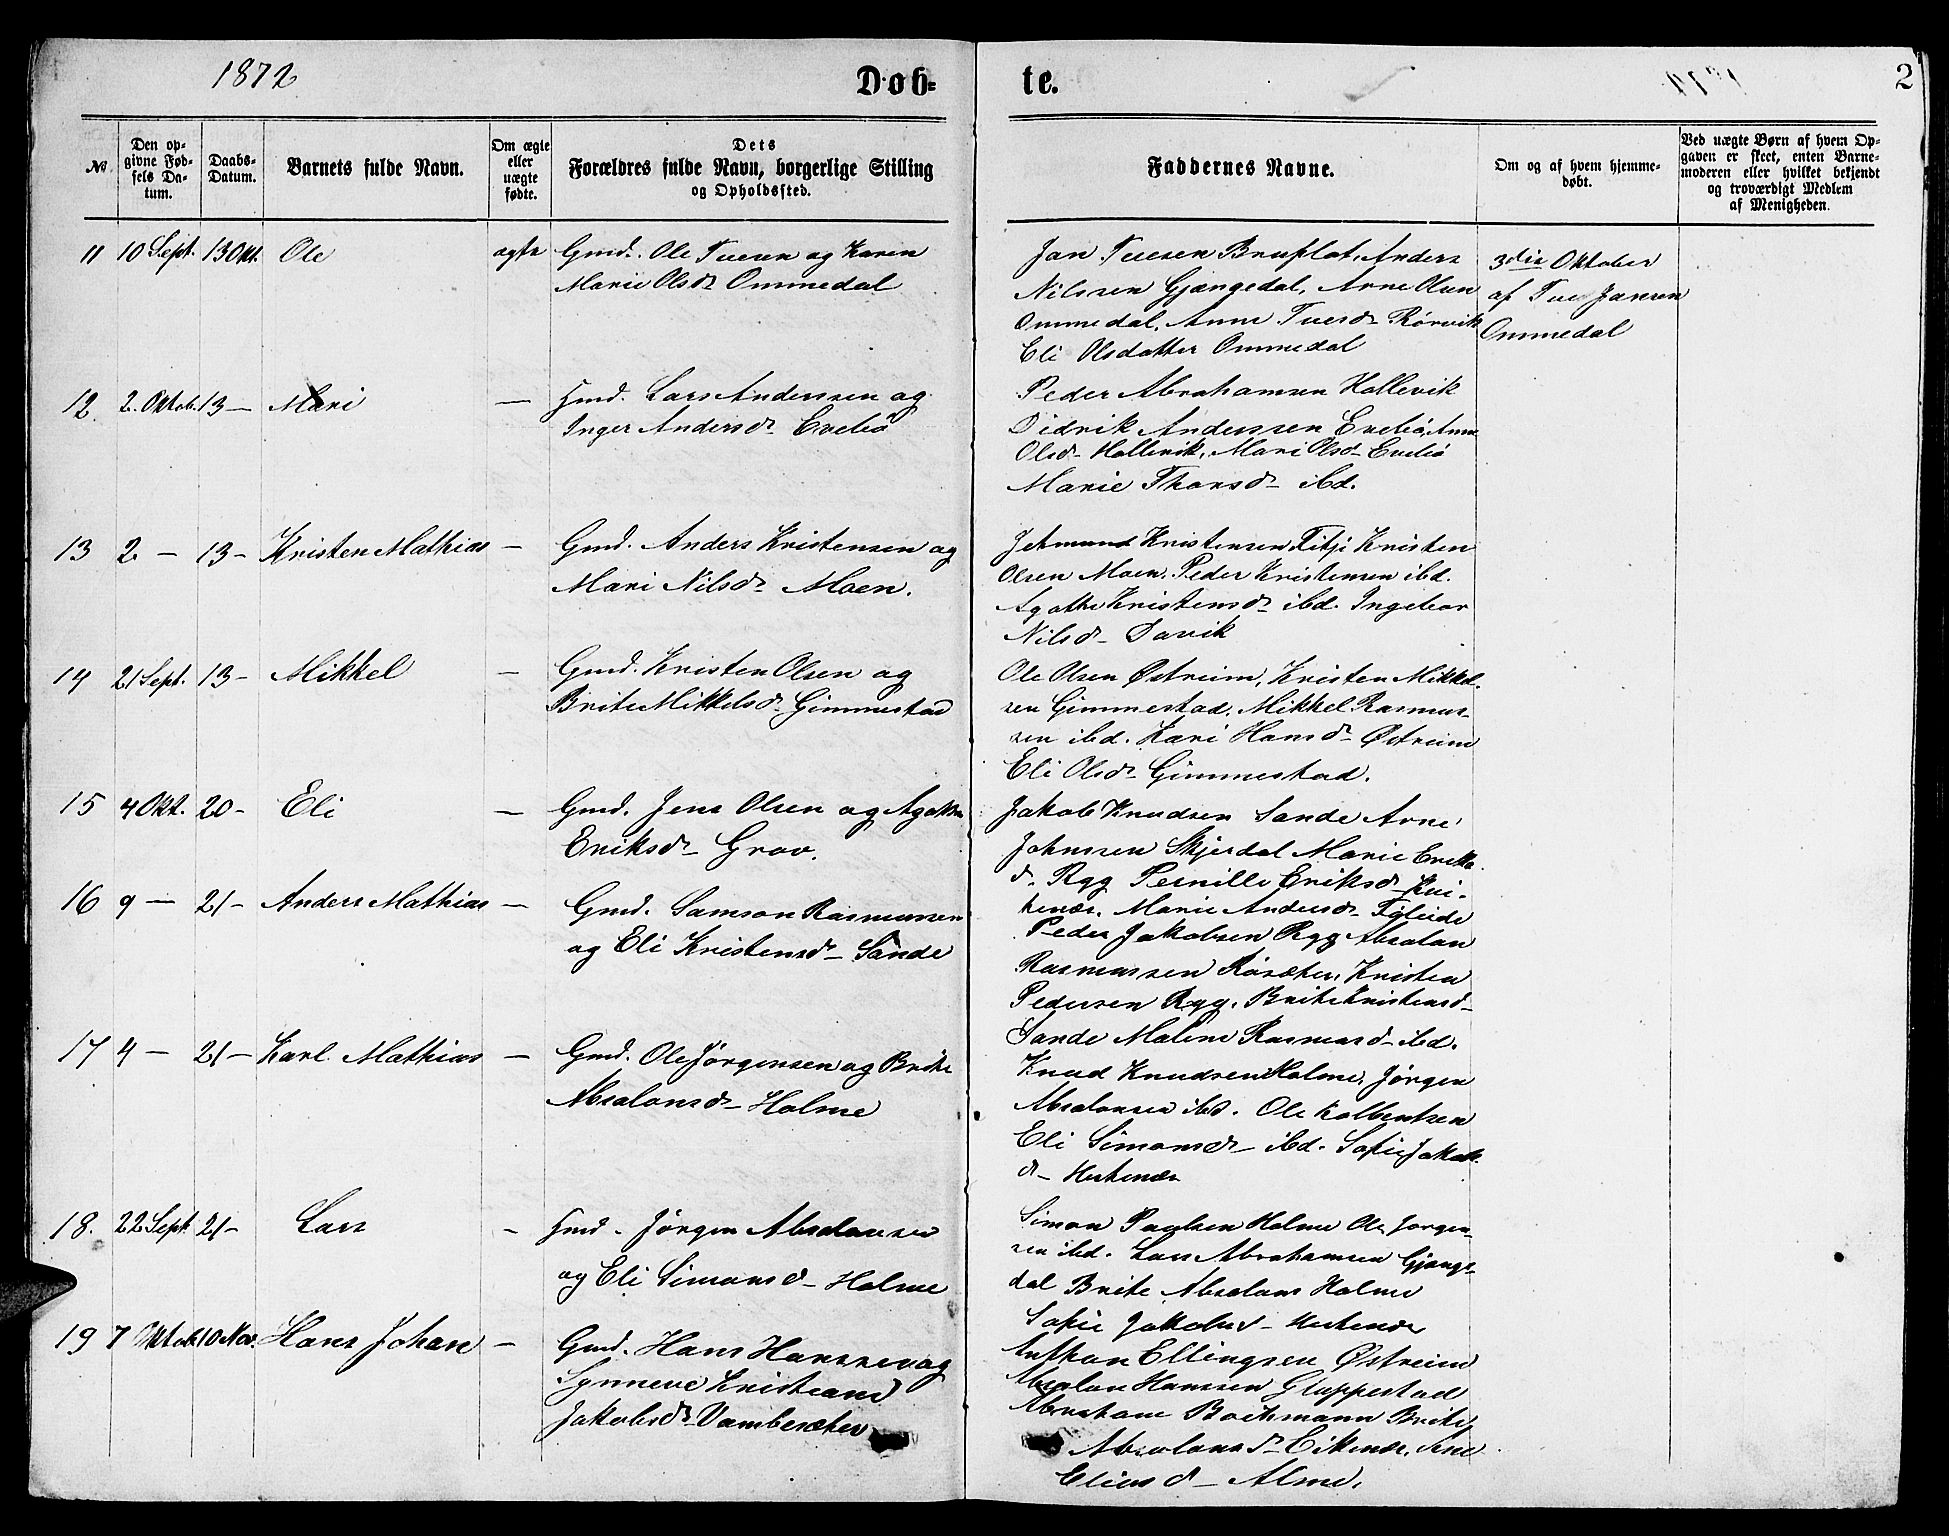 1872
Døb-
te.
2
№
Den op-
givne Fød-
sels Da-
tum.
Daabs-
Datum.
Barnets fulde Navn.
Om ægte
eller
uægte
fødte.
Dets
Forældres fulde Navn, borgerlige Stilling
og Opholdssted.
Faddernes Navne.
Om og af hvem hjemme-
døbt.
Ved uægte Børn af hvem Op-
gaven er skeet, enten Barne-
moderen eller hvilket bekjendt
og troværdigt Medlem
af Menigheden.
11 10 Sept. 13 Okt. Ole ægte Gmd. Ole Tuesen og Karen
Marie Olsd Ommedal
Jan Tuesen Bruflot, Anders
Nilssen Gjængedal, Arne Olsen
Ommedal, Anne Tuesd Rørvik
Eli Olsdatter Ommedal
3die Oktober
af Tue Jansen
Ommedal
12. 2. Oktob. 13 — Mari — Hmd. Lars Anderssen og
Inger Andersd Evebø
Peder Abrahamsen Hollevik
Didrik Anderssen Evebø, Anne
Olsd Hollevik, Mari Olsd Evebø
Marie Thorsd ibd.
13 2 — 13 — Kristen Mathias — Gmd. Anders Kristensen og
Mari Nilsd Moen.
Jetmund Kristensen Fitje Kristen
Olsen Moen. Peder Kristensen ibd.
Agathe Kristensd ibd. Ingebor
Nilsd Davik
14 21 Sept. 13 — Mikkel — Gmd. Kristen Olsen og
Brite Mikkelsd Gimmestad
Ole Olsen Østreim, Kristen Mikkel-
sen Gimmestad. Mikkel Rasmus-
sen ibd. Kari Hansd Østreim
Eli Olsd Gimmestad.
15 4 Okt. 20 — Eli — Gmd. Jens Olsen og Agathe
Eriksd Grov.
Jakob Knudsen Sande Arne
Johnssen Skjerdal Marie Eriks
d. Ryg Pernille Eriksd
Marie Andersd
16 9 — 21 — Anders Mathias — Gmd. Samson Rasmussen
og Eli Kristensd Sande
Peder Jakobsen Ryg Absalon
Rasmussen Røsæter, Kristen
Pedersen Ryg. Brite Kristensd
Sande Malene Rasmusd ibd.
17 4 — 21 — Karl Mathias — Gmd. Ole Jørgensen og Brite
Absalonsd Holme
Knud Knudsen Holme, Jørgen
Absalonsen ibd. Ole Kolbentsen
Eli Simonsd ibd. Sofie Jakobs
d Hestenæs
18. 22 Sept. 21 — Lars — Hmd. Jørgen Absalonsen
og Eli Simonsd Holme
Simon Paulsen Holme Ole Jørgen-
sen ibd. Lars Abrahamsen Gjenge-
dal Brite Absalons Holme
Sofie Jakobsd Hestenæs
19 7 Oktob. 10 Nov. Hans Johan — Gmd. Hans Hanssen og
Synneve Kristiane
Jakobsd Vambesæter
Anthon Ellingsen Østreim
Absalon Hanssen Gloppestad
Abraham Bothmann Brite
Absalonsd Eikenæs. Sine
Eliasd Alme.